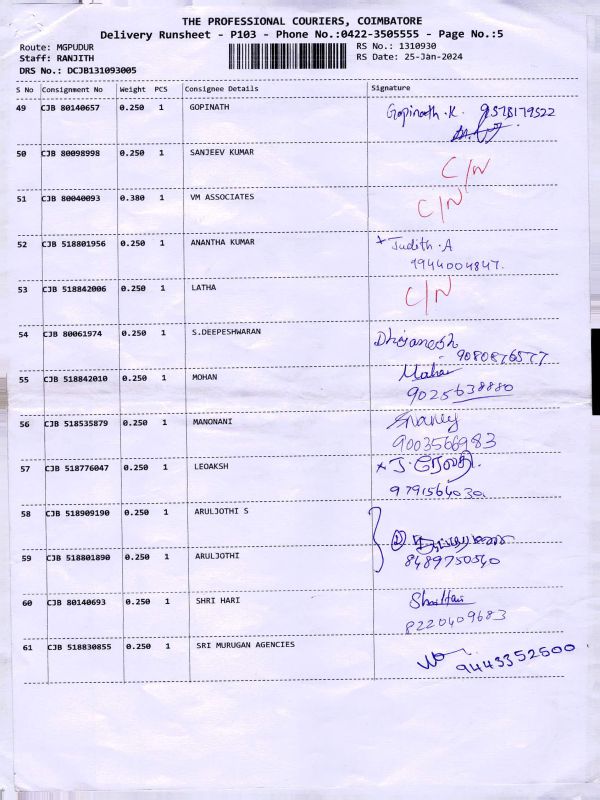 THE PROFESSIONAL COURIERS, COIMBATORE
Delivery Runsheet - P103 - Phone No.:0422-3505555 - Page No.:5
Route: MGPUDUR
RS No.: 1310930
Staff: RANJITH
RS Date: 25-Jan-2024
DRS No.: DCJB131093005
S No Consignment No Weight PCS Consignee Details Signature
49 CJB 80140657 0.250 1 GOPINATH Gopinath.K. 9578179522
50 CJB 80098998 0.250 1 SANJEEV KUMAR C/N
51 CJB 80040093 0.380 1 VM ASSOCIATES C/N
52 CJB 518801956 0.250 1 ANANTHA KUMAR Judith.A
9944004847.
53 CJB 518842006 0.250 1 LATHA C/N
54 CJB 80061974 0.250 1 S.DEEPESHWARAN
9080876577
55 CJB 518842010 0.250 1 MOHAN Mohan
9025638880
56 CJB 518535879 0.250 1 MANONANI
9003566983
57 CJB 518776047 0.250 1 LEOAKSH
9791564030
58 CJB 518909190 0.250 1 ARULJOTHI S
59 CJB 518801890 0.250 1 ARULJOTHI 8489750540
60 CJB 80140693 0.250 1 SHRI HARI Shri Hari
8220409683
61 CJB 518830855 0.250 1 SRI MURUGAN AGENCIES 9443352500